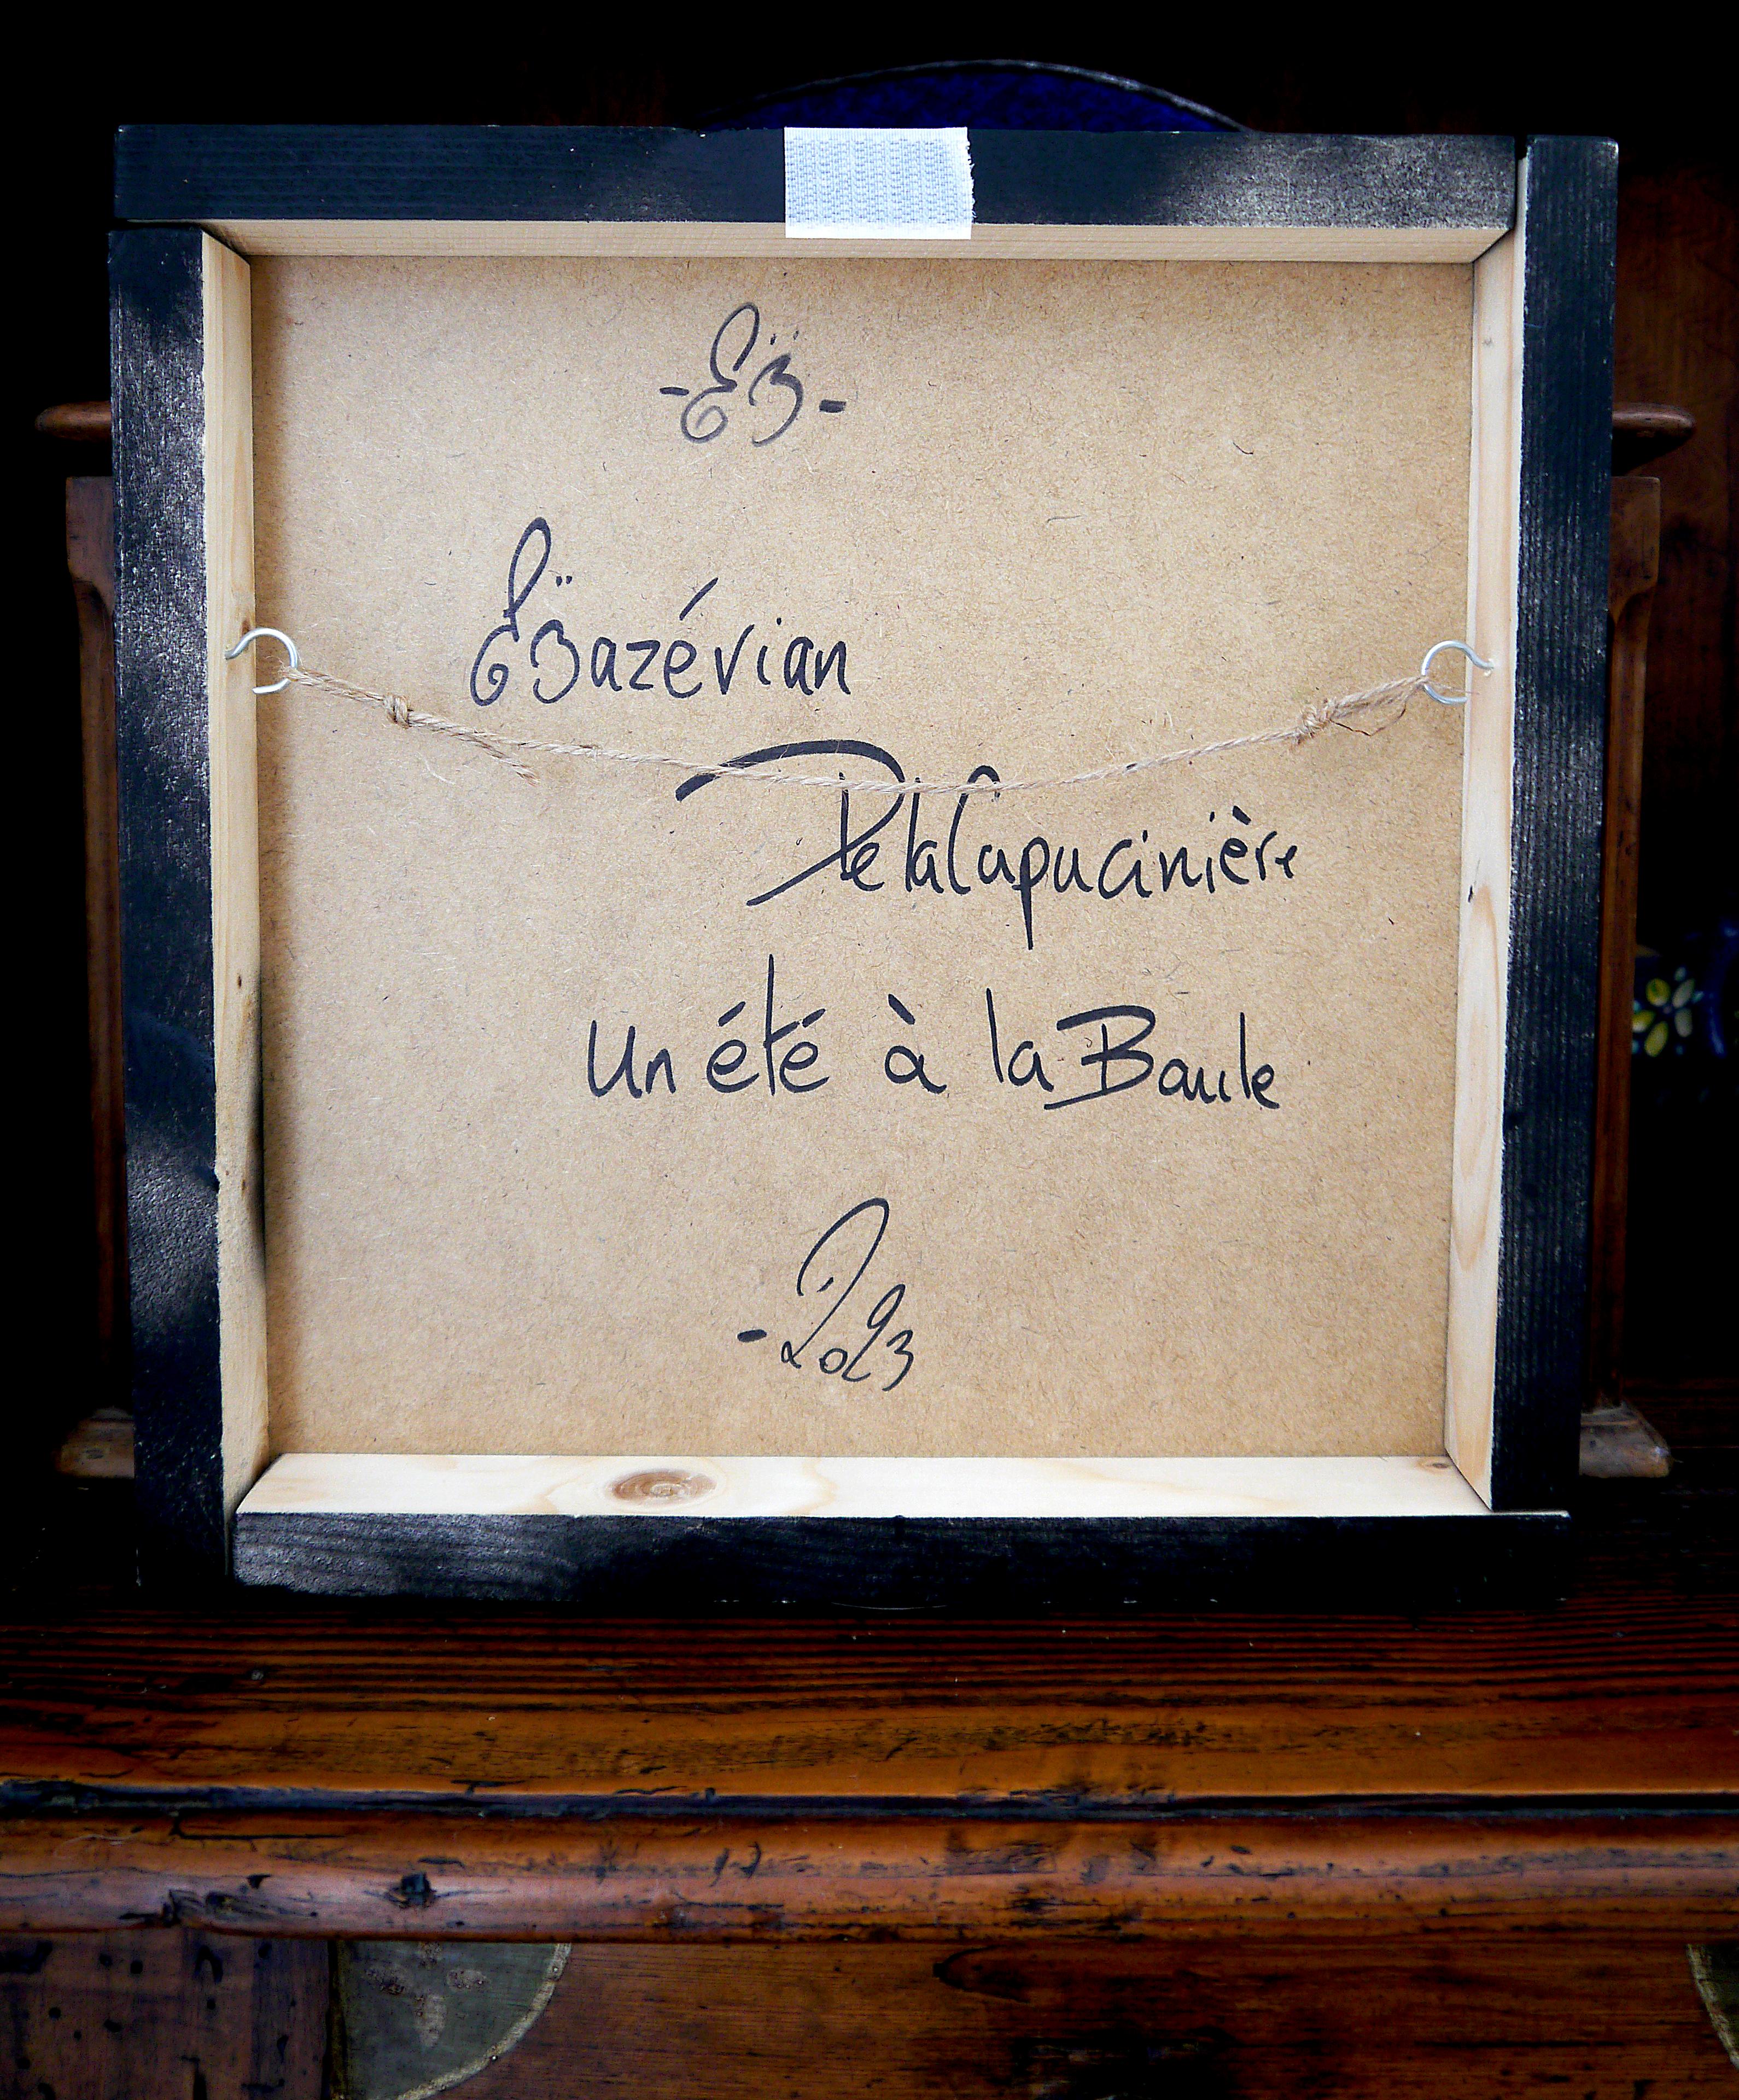 -ËB-
ËBazévian
DelaCapucinière
Un été à la Baule
-2023